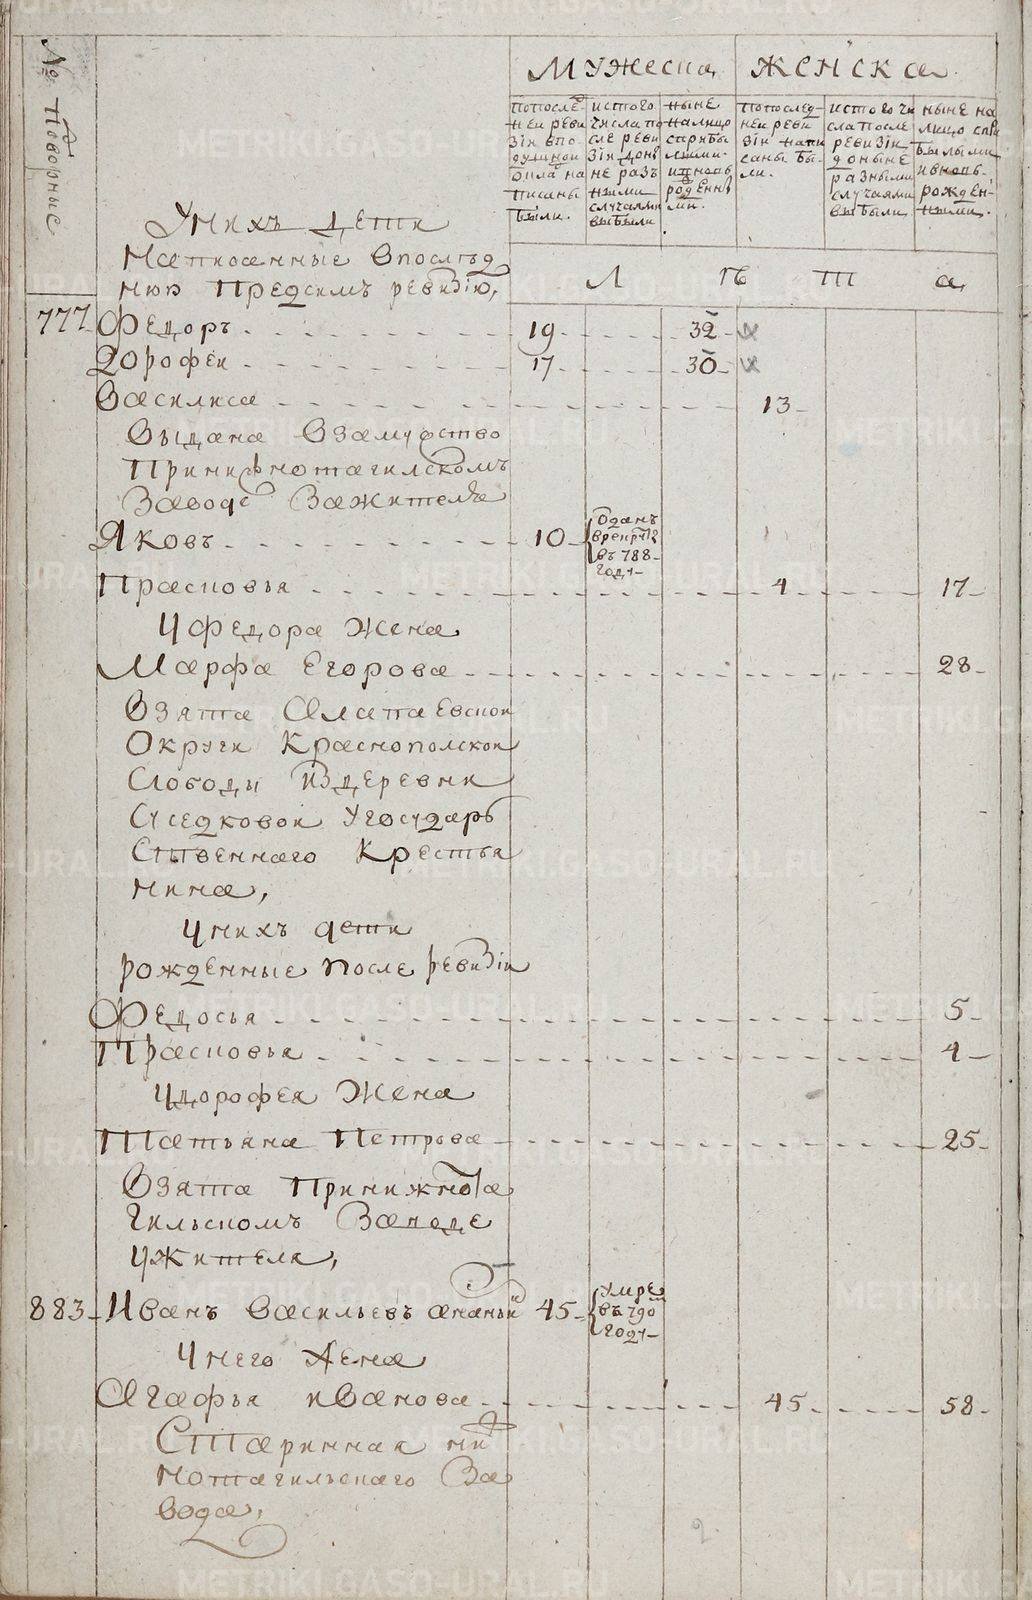 № Подворные
Мужеска
Женска
попосле
ней реви
зіи впо
душной
окла на
писаны
были.
истого
числа по
сле реви
зіи доны
не разъ
ными
случаями
выбыли
ныне
налицо
справы
лыми
ивновь
рожденны
ми.
попослед
ней реви
зіи напи
саны бы
ли.
истого чи
сла после
ревизіи
доныне
разными
случаями
выбыли
ныне на
лицо
былыми
ивновь
рожден
ными.
Унихъ дети
Написанные впослед
нюю предсимъ ревизію,
Л ѣ т а
777 Федоръ 19 32
Дорофеи 17 30
Василиса 13
Выдана взамуство
Принижнотагилскомъ
Заводе Зажителя
Яковъ 10 Отданъ
врекруты
въ 788
году
Прасковья 4 17
Уфедора жена
Марфа Егорова 28
Взята Алапаевскои
Округи Краснополскои
Слободы издеревни
Суседковой Угосударъ
Ственнаго Крестья
нина,
Унихъ дети
рожденные После ревизіи
Федосья 5
Прасковья 4
Удорофея Жена
Татьяна Петрова 25
Взята Принижнота
гильскомъ Заводе
Ужителя,
883 Иванъ Васильевъ ананьи 45 умре
въ 790
году
Унего Жена
Агафья иванова 45 58
Старинная ни
нотагильскаго За
вода,
2
METRIKI.GASO-URAL.RU